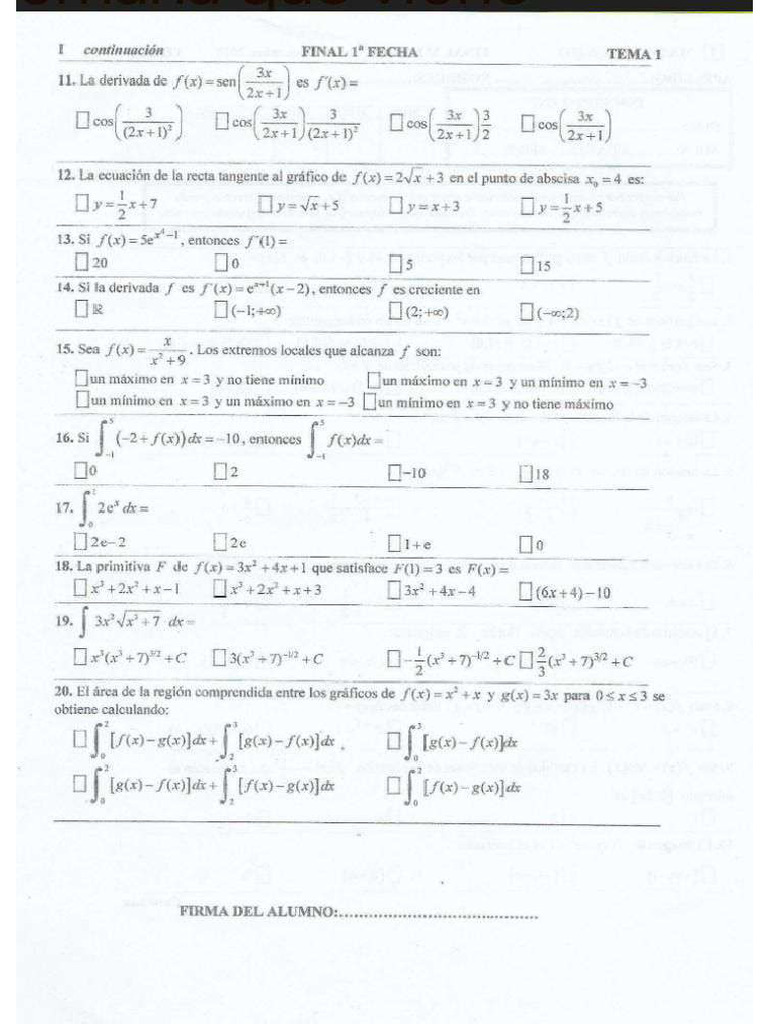 I continuación FINAL 1ª FECHA TEMA 1
11. La derivada de f(x) = sen(3x/(2x+1)) es f'(x) =
☐ cos(3/(2x+1)²) ☐ cos(3x/(2x+1)) 3/(2x+1)² ☐ cos(3x/(2x+1)) 3/2 ☐ cos(3x/(2x+1))
12. La ecuación de la recta tangente al gráfico de f(x) = 2√x + 3 en el punto de abscisa x₀ = 4 es:
☐ y = 1/2 x + 7 ☐ y = √x + 5 ☐ y = x + 3 ☐ y = 1/2 x + 5
13. Si f(x) = 5e^(x⁴−1), entonces f'(1) =
☐ 20 ☐ 0 ☐ 5 ☐ 15
14. Si la derivada f es f'(x) = e^(x−1)(x − 2), entonces f es creciente en
☐ ℝ ☐ (−1;+∞) ☐ (2;+∞) ☐ (−∞;2)
15. Sea f(x) = x/(x² + 9). Los extremos locales que alcanza f son:
☐ un máximo en x = 3 y no tiene mínimo ☐ un máximo en x = 3 y un mínimo en x = −3
☐ un mínimo en x = 3 y un máximo en x = −3 ☐ un mínimo en x = 3 y no tiene máximo
16. Si ∫₋₁⁵ (−2 + f(x))dx = −10, entonces ∫₋₁⁵ f(x)dx =
☐ 0 ☐ 2 ☐ −10 ☐ 18
17. ∫₀¹ 2eˣ dx =
☐ 2e − 2 ☐ 2e ☐ 1 + e ☐ 0
18. La primitiva F de f(x) = 3x² + 4x + 1 que satisface F(1) = 3 es F(x) =
☐ x³ + 2x² + x − 1 ☐ x³ + 2x² + x + 3 ☐ 3x² + 4x − 4 ☐ (6x + 4) − 10
19. ∫ 3x²√(x³ + 7) dx =
☐ x³(x³ + 7)^(3/2) + C ☐ 3(x³ + 7)^(−1/2) + C ☐ −1/2 (x³ + 7)^(−1/2) + C ☐ 2/3 (x³ + 7)^(3/2) + C
20. El área de la región comprendida entre los gráficos de f(x) = x² + x y g(x) = 3x para 0 ≤ x ≤ 3 se
obtiene calculando:
☐ ∫₀² [f(x) − g(x)]dx + ∫₂³ [g(x) − f(x)]dx ☐ ∫₀³ [g(x) − f(x)]dx
☐ ∫₀² [g(x) − f(x)]dx + ∫₂³ [f(x) − g(x)]dx ☐ ∫₀² [f(x) − g(x)]dx
FIRMA DEL ALUMNO:......................................